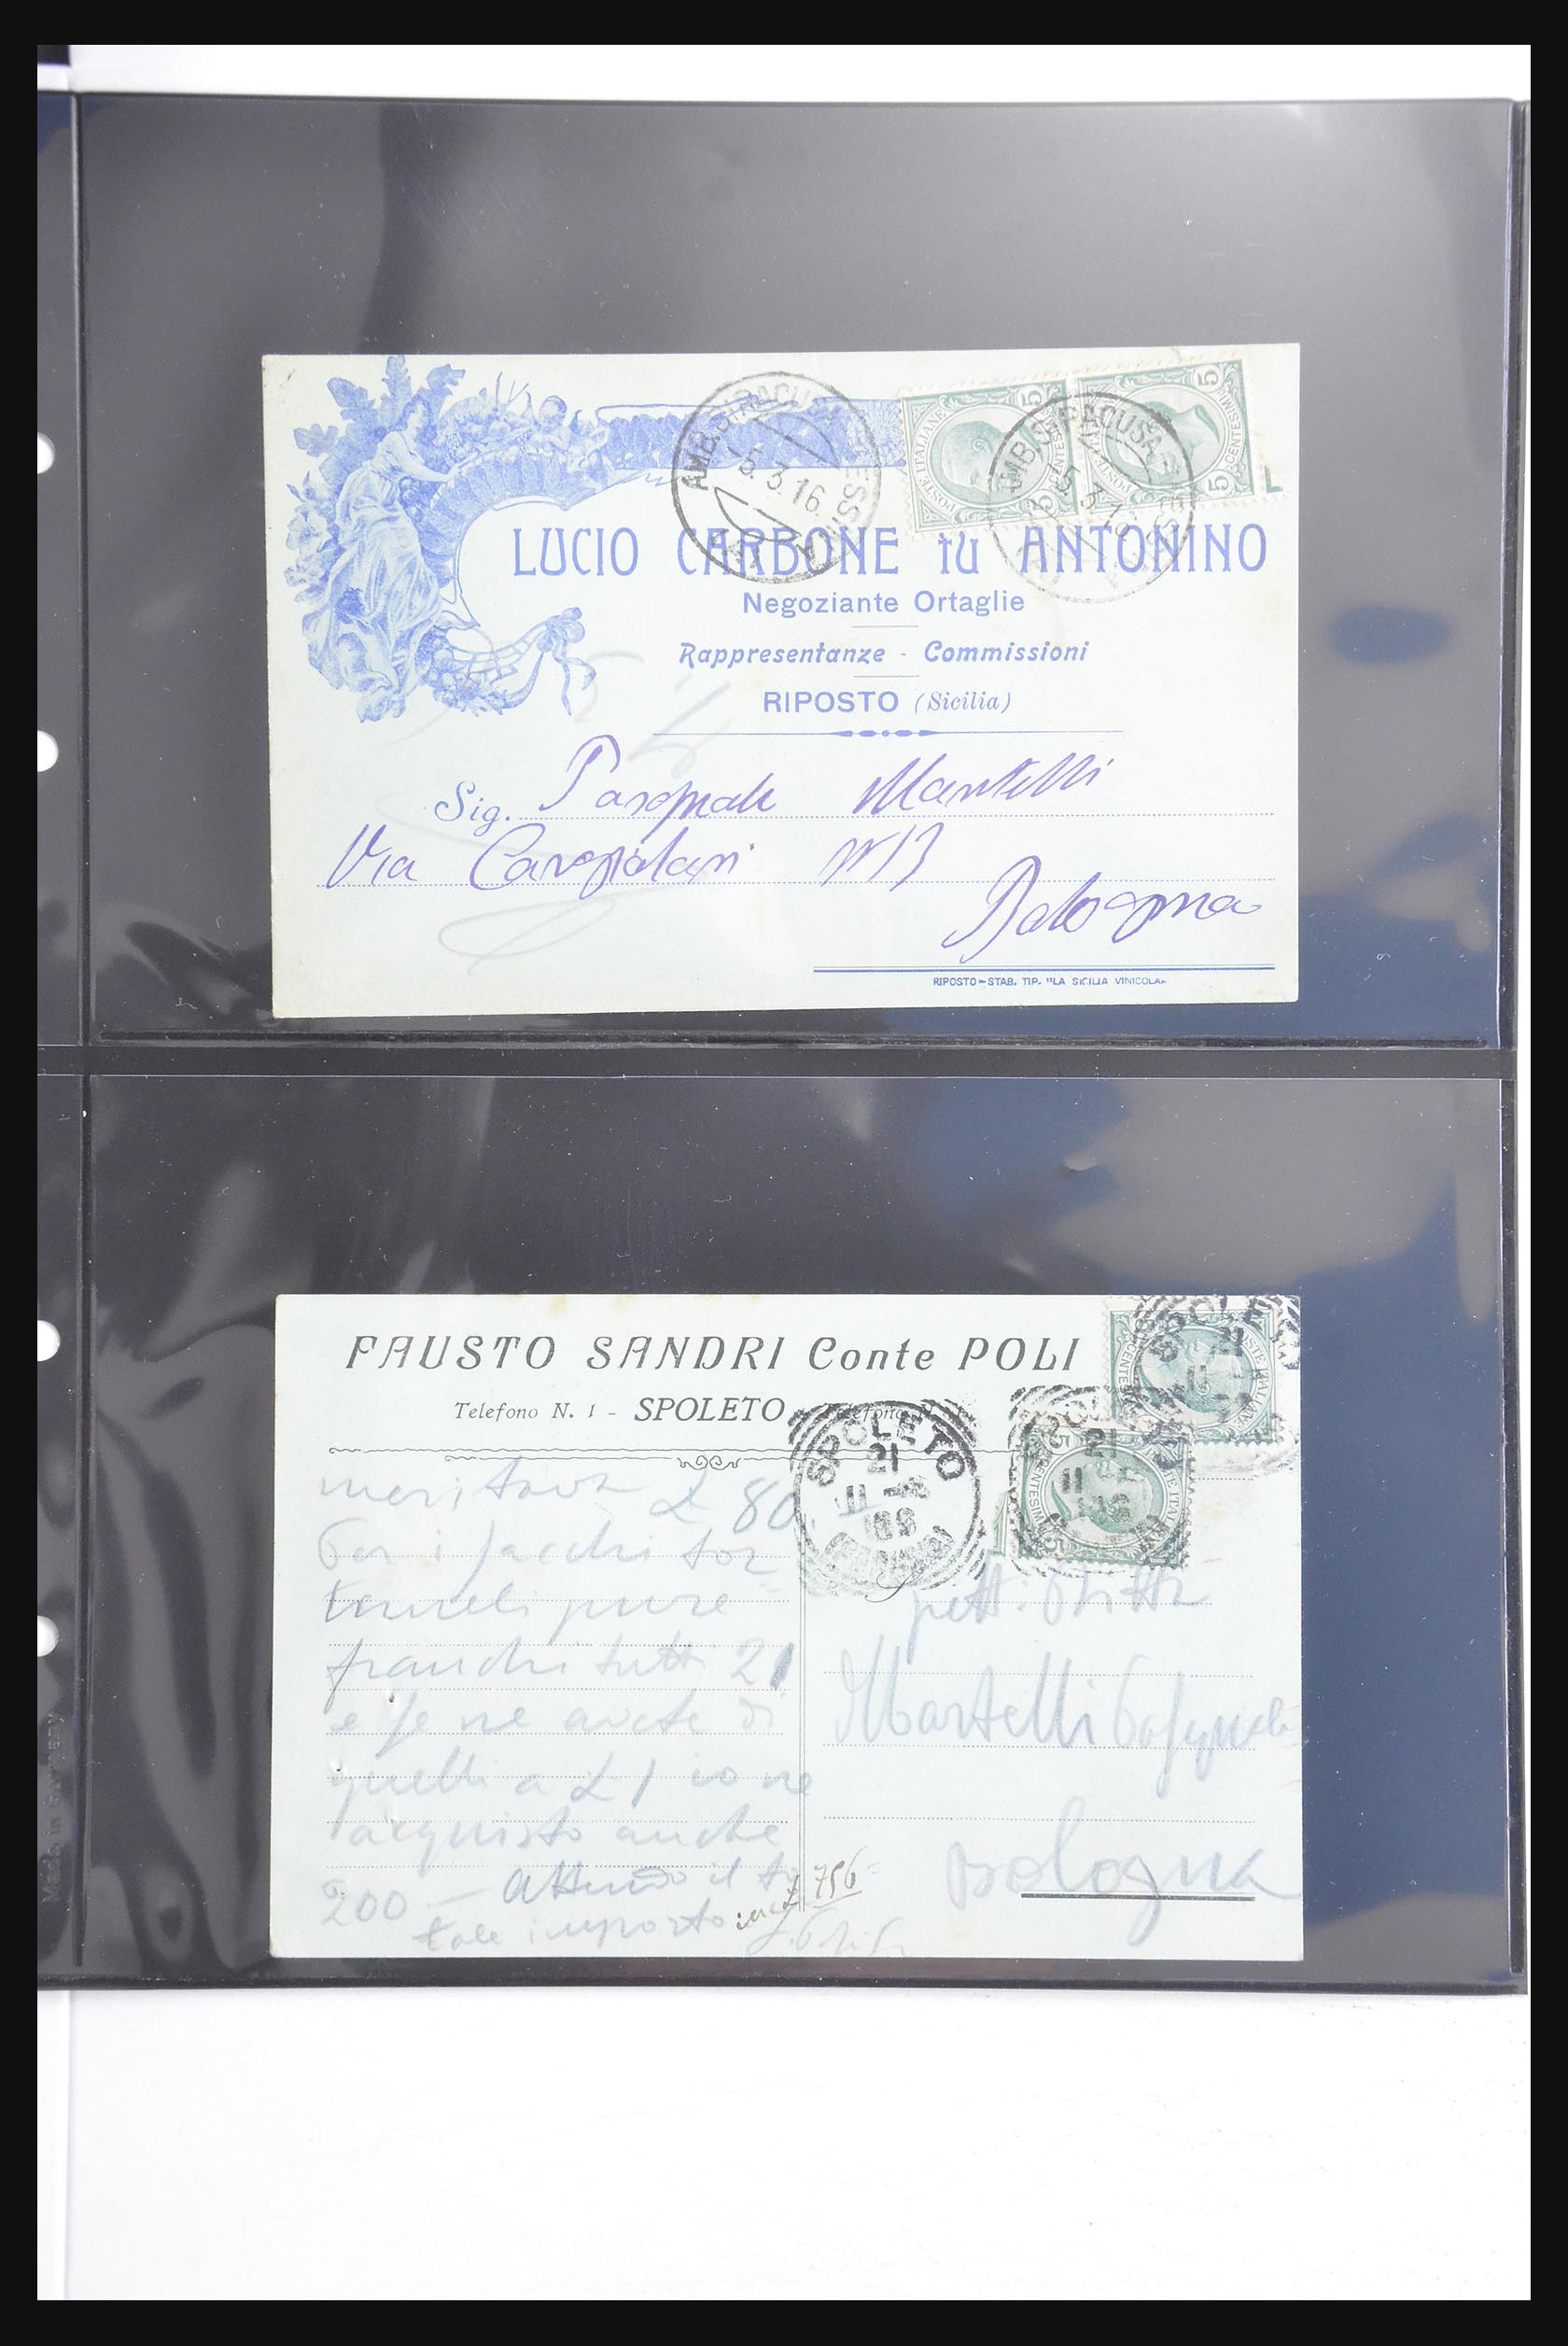 AMB. SIRACUSA MESSINA
5.3.16
POSTE ITALIANE
CENTESIMI 5
LUCIO CARBONE fu ANTONINO
Negoziante Ortaglie
Rappresentanze - Commissioni
RIPOSTO (Sicilia)
Sig. Pasquale Mantelli
Via
Bologna
RIPOSTO—STAB. TIP. "LA SICILIA VINICOLA"
FAUSTO SANDRI Conte POLI
Telefono N. 1 - SPOLETO - Telefono N.
SPOLETO
21
L 80
per i sacchi
pure
franchi tutti 21
e se ne avete di
quelli a £ 1 io ne
acquisto anche
200 — attendo il
tale importo
£ 756
pett. Ditta
Martelli Pasquale
Bologna
Made in Germany